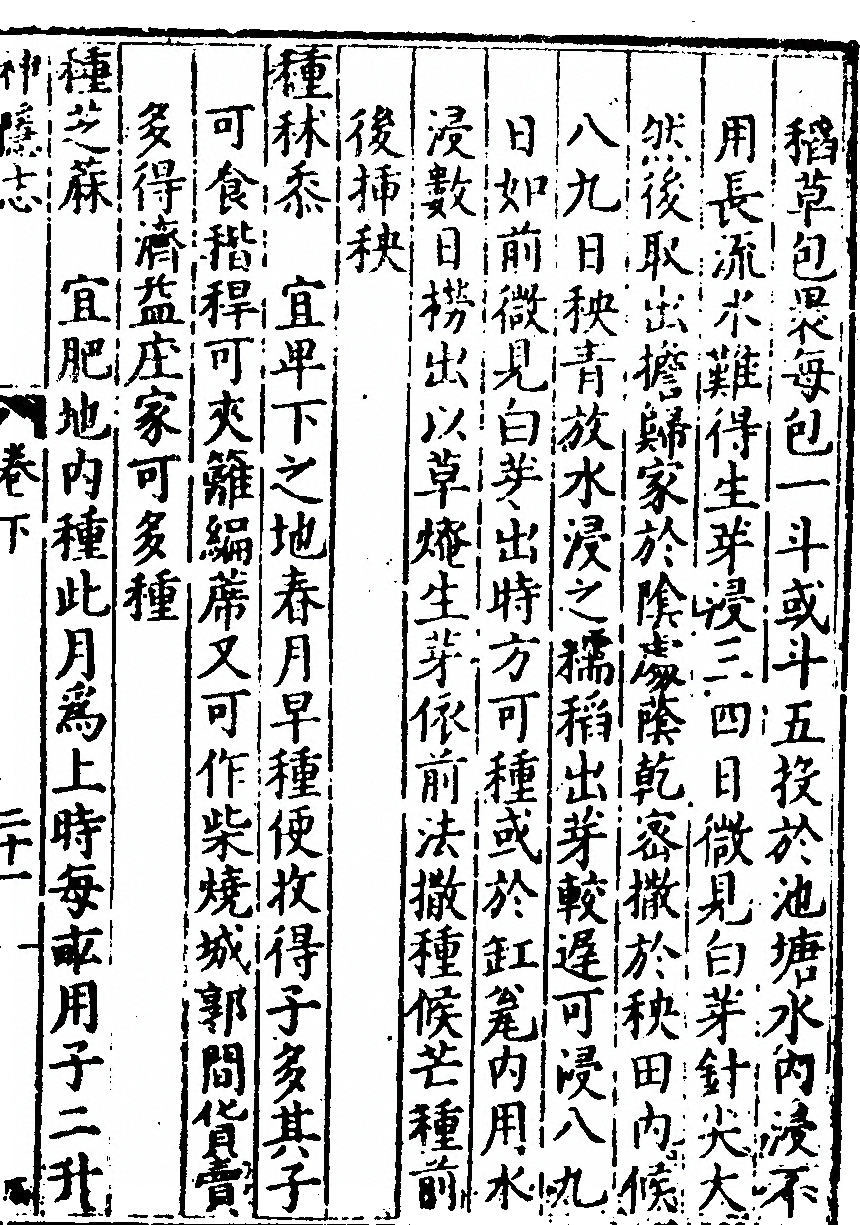 稻草包裹每包一斗或斗五投於池塘水內浸不
用長流水難得生芽浸三四日微見白芽針尖大
然後取出擔歸家於陰處蔭乾密撒於秧田內候
八九日秧青放水浸之糯稻出芽較遲可浸八九
日如前微見白芽出時方可種或於缸瓮內用水
浸數日撈出以草燣生芽依前法撒種候芒種前
後揷秧
種秫黍 宜卑下之地春月早種便收得子多其子
可食稭稈可夾籬編蓆又可作柴燒城郭間貨賣
多得濟益庄家可多種
種芝蔴 宜肥地內種此月爲上時每畝用子二升
神隱志 卷下 二十一